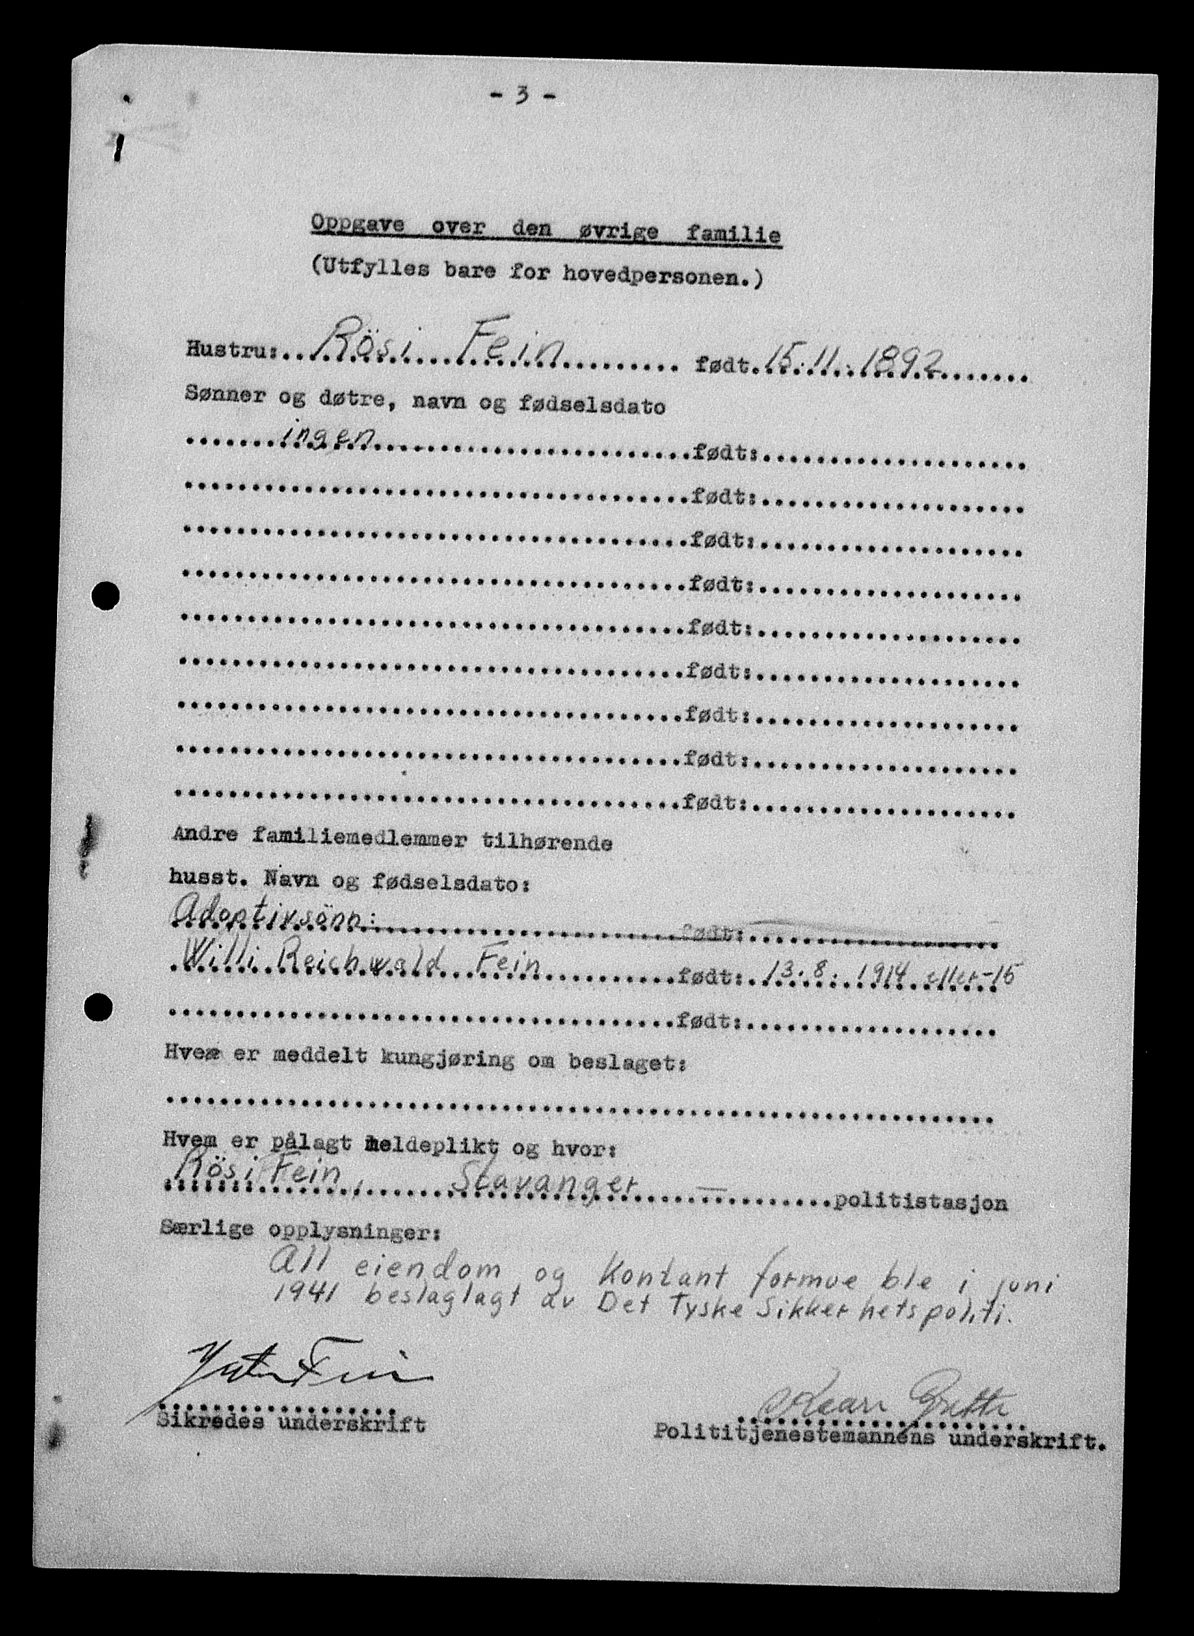 - 3 -
Oppgave over den øvrige familie
(Utfylles bare for hovedpersonen.)
Hustru: Rösi Fein født 15.11.1892
Sønner og døtre, navn og fødselsdato
ingen født:
født:
født:
født:
født:
født:
født:
født:
født:
Andre familiemedlemmer tilhørende
husst. Navn og fødselsdato:
Adoptivsönn: født:
Willi Reichwald Fein født: 13.8.1914 eller -15
født:
Hvem er meddelt kungjøring om beslaget:
Hvem er pålagt meldeplikt og hvor:
Rösi Fein, Stavanger politistasjon
Særlige opplysninger:
All eiendom og kontant formue ble i juni
1941 beslaglagt av Det Tyske Sikkerhetspoliti.
Fein
Sikredes underskrift
Politijenestemannens underskrift.